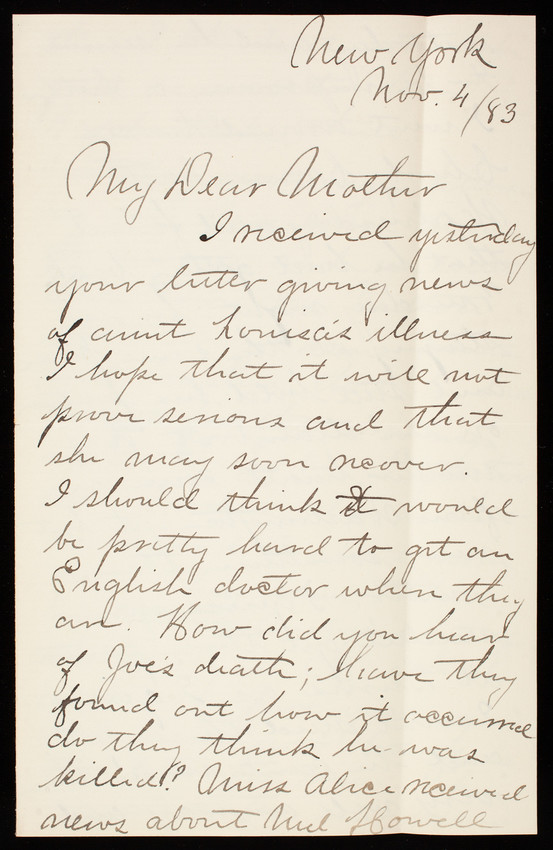 New York
Nov. 4/83
My Dear Mother
I received yesterday
your letter giving news
of aunt Louisa's illness
I hope that it will not
prove serious and that
she may soon recover.
I should think it would
be pretty hard to get an
English doctor when they
are. How did you hear
of Joe's death; have they
found out how it occurred
do they think he was
killed? Miss Alice received
news about Howell